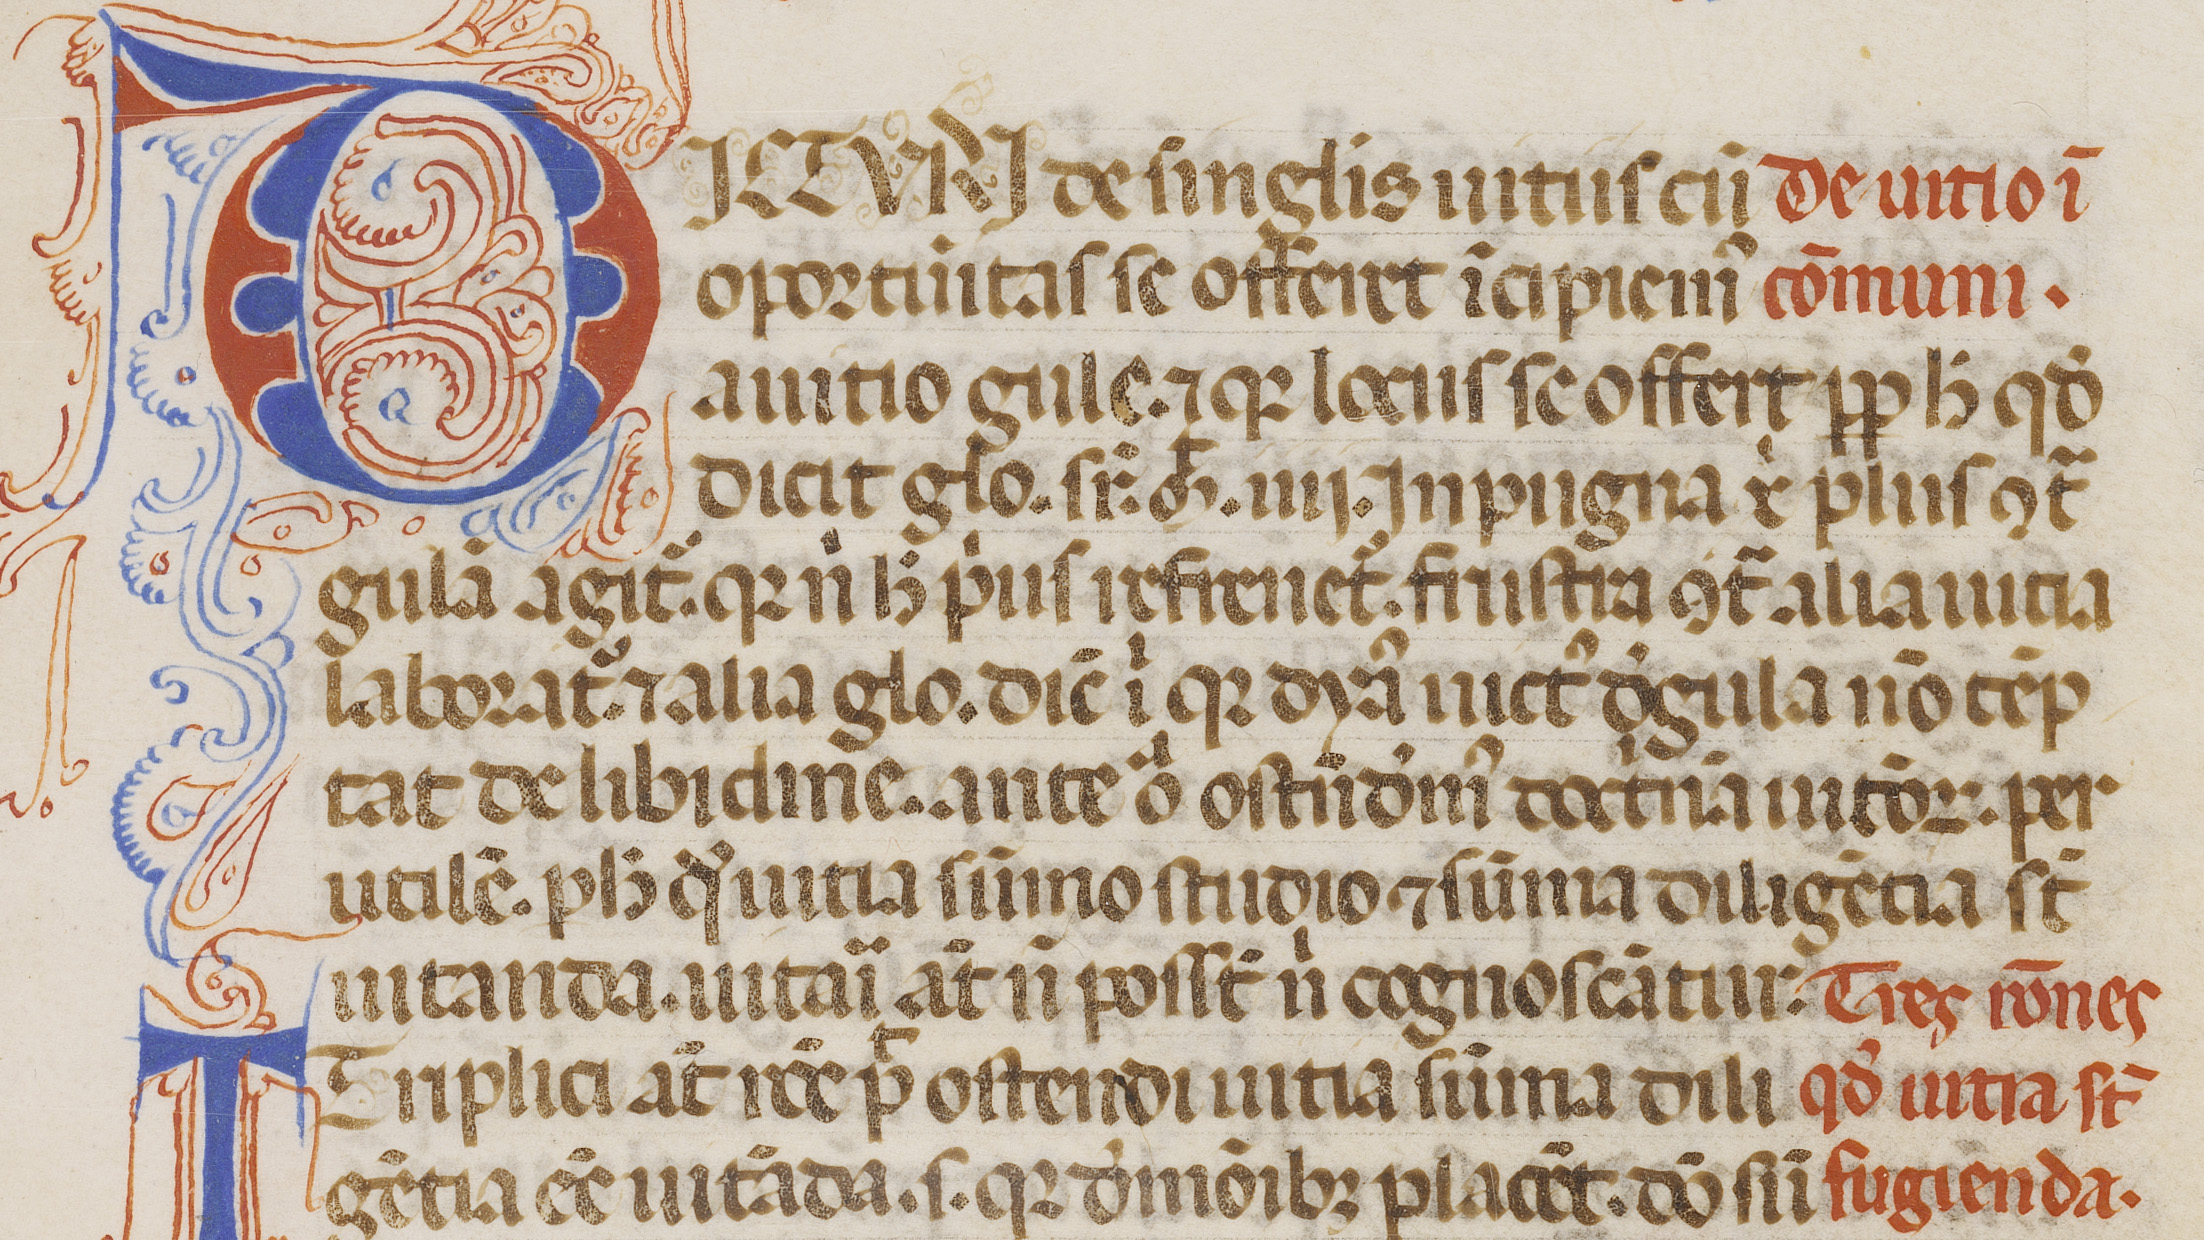 DICTVRI de singlis uitiis cũ De uitio ĩ
oportũitas se offeret ĩcipiemꝰ cõmuni.
a uitio gule. ⁊ qꝛ locus se offert ꝓp h̾ qđ
dicit glo. sr̃. Mͭ. iiij. In pugna xͥ plus ꝯt̃
gulã agit᷑. qꝛ nͥ h̾ pͥus refrenet᷑. frustra ꝯt̃ alia uitia
laborat᷑. ⁊ alia glo. dic̃ ĩ qꝛ dyãꝰ uictꝰ đ gula nõ tẽp
tat de libidine. ante gͦ ostẽdemꝰ detͥmẽta uitioꝝ. per
utilẽ. ph̾ qđ uitia sũmo studio ⁊ sũma diligẽtia st̃
uitanda. uitari at̃ ñ possͭ nͥ cognoscãtur. Tres rõnes
Triplici at̃ rõe pͭ ostendi uitia sũma dili qđ uitia st̃
gẽtia eẽ uitãda. s. qꝛ demõibꝫ placẽt. dõ sũ fugienda.